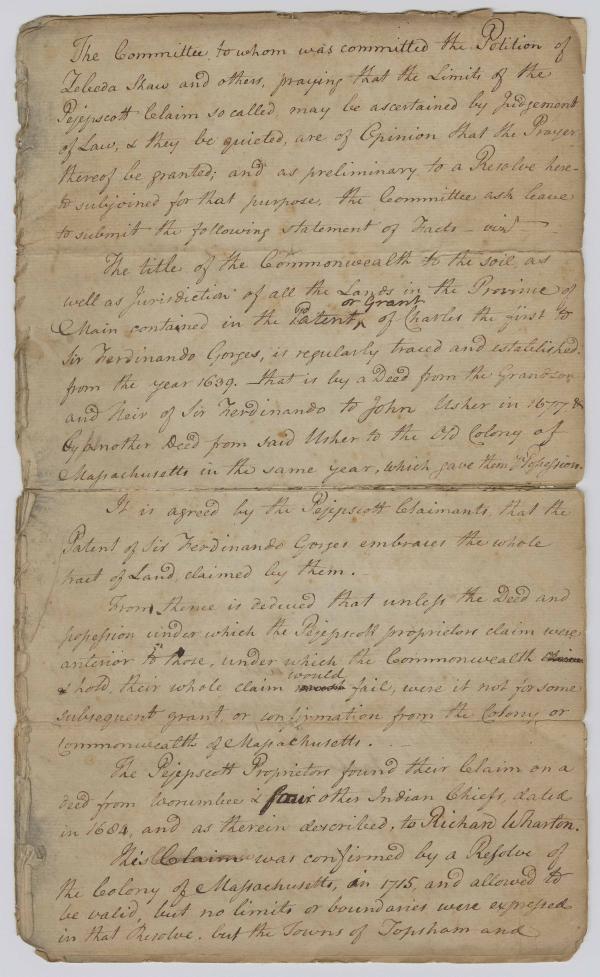 The Committee to whom was committed the Petition of
Zebeda Shaw and others, praying that the Limits of the
Pejepscott Claim so called, may be ascertained by Judgement
of Law, & they be quieted, are of Opinion that the Prayer
thereof be granted; and as preliminary to a Resolve here-
to subjoined for that purpose, the Committee ask leave
to submit the following statement of Facts – viz –
The title of the Commonwealth to the soil, as
well as Jurisdiction of all the Lands in the Province of
or Grant
Main contained in the Patent, of Charles the first to
Sir Ferdinando Gorges, is regularly traced and established.
from the year 1639. that is by a Deed from the Grandson
and Heir of Sir Ferdinando to John Usher in 1677 &
by another Deed from said Usher to the Old Colony of
Massachusetts in the same year, which gave them Possession.
It is agreed by the Pejepscott Claimants, that the
Patent of Sir Ferdinando Gorges embraces the whole
tract of Land, claimed by them.
From thence is deduced that unless the Deed and
possession under which the Pejepscott proprietors claim were
anterior to those, under which the Commonwealth claim
would
& hold, their whole claim fail, were it not for some
subsequent grant, or confirmation from the Colony, or
Commonwealth of Massachusetts.
The Pejepscott Proprietors found their Claim on a
deed from Worumbee & four other Indian Chiefs, dated
in 1684, and as therein described, to Richard Wharton.
This Claim was confirmed by a Resolve of
the Colony of Massachusetts, in 1715, and allowed to
be valid, but no limits or boundaries were expressed
in that Resolve. but the Towns of Topsham and